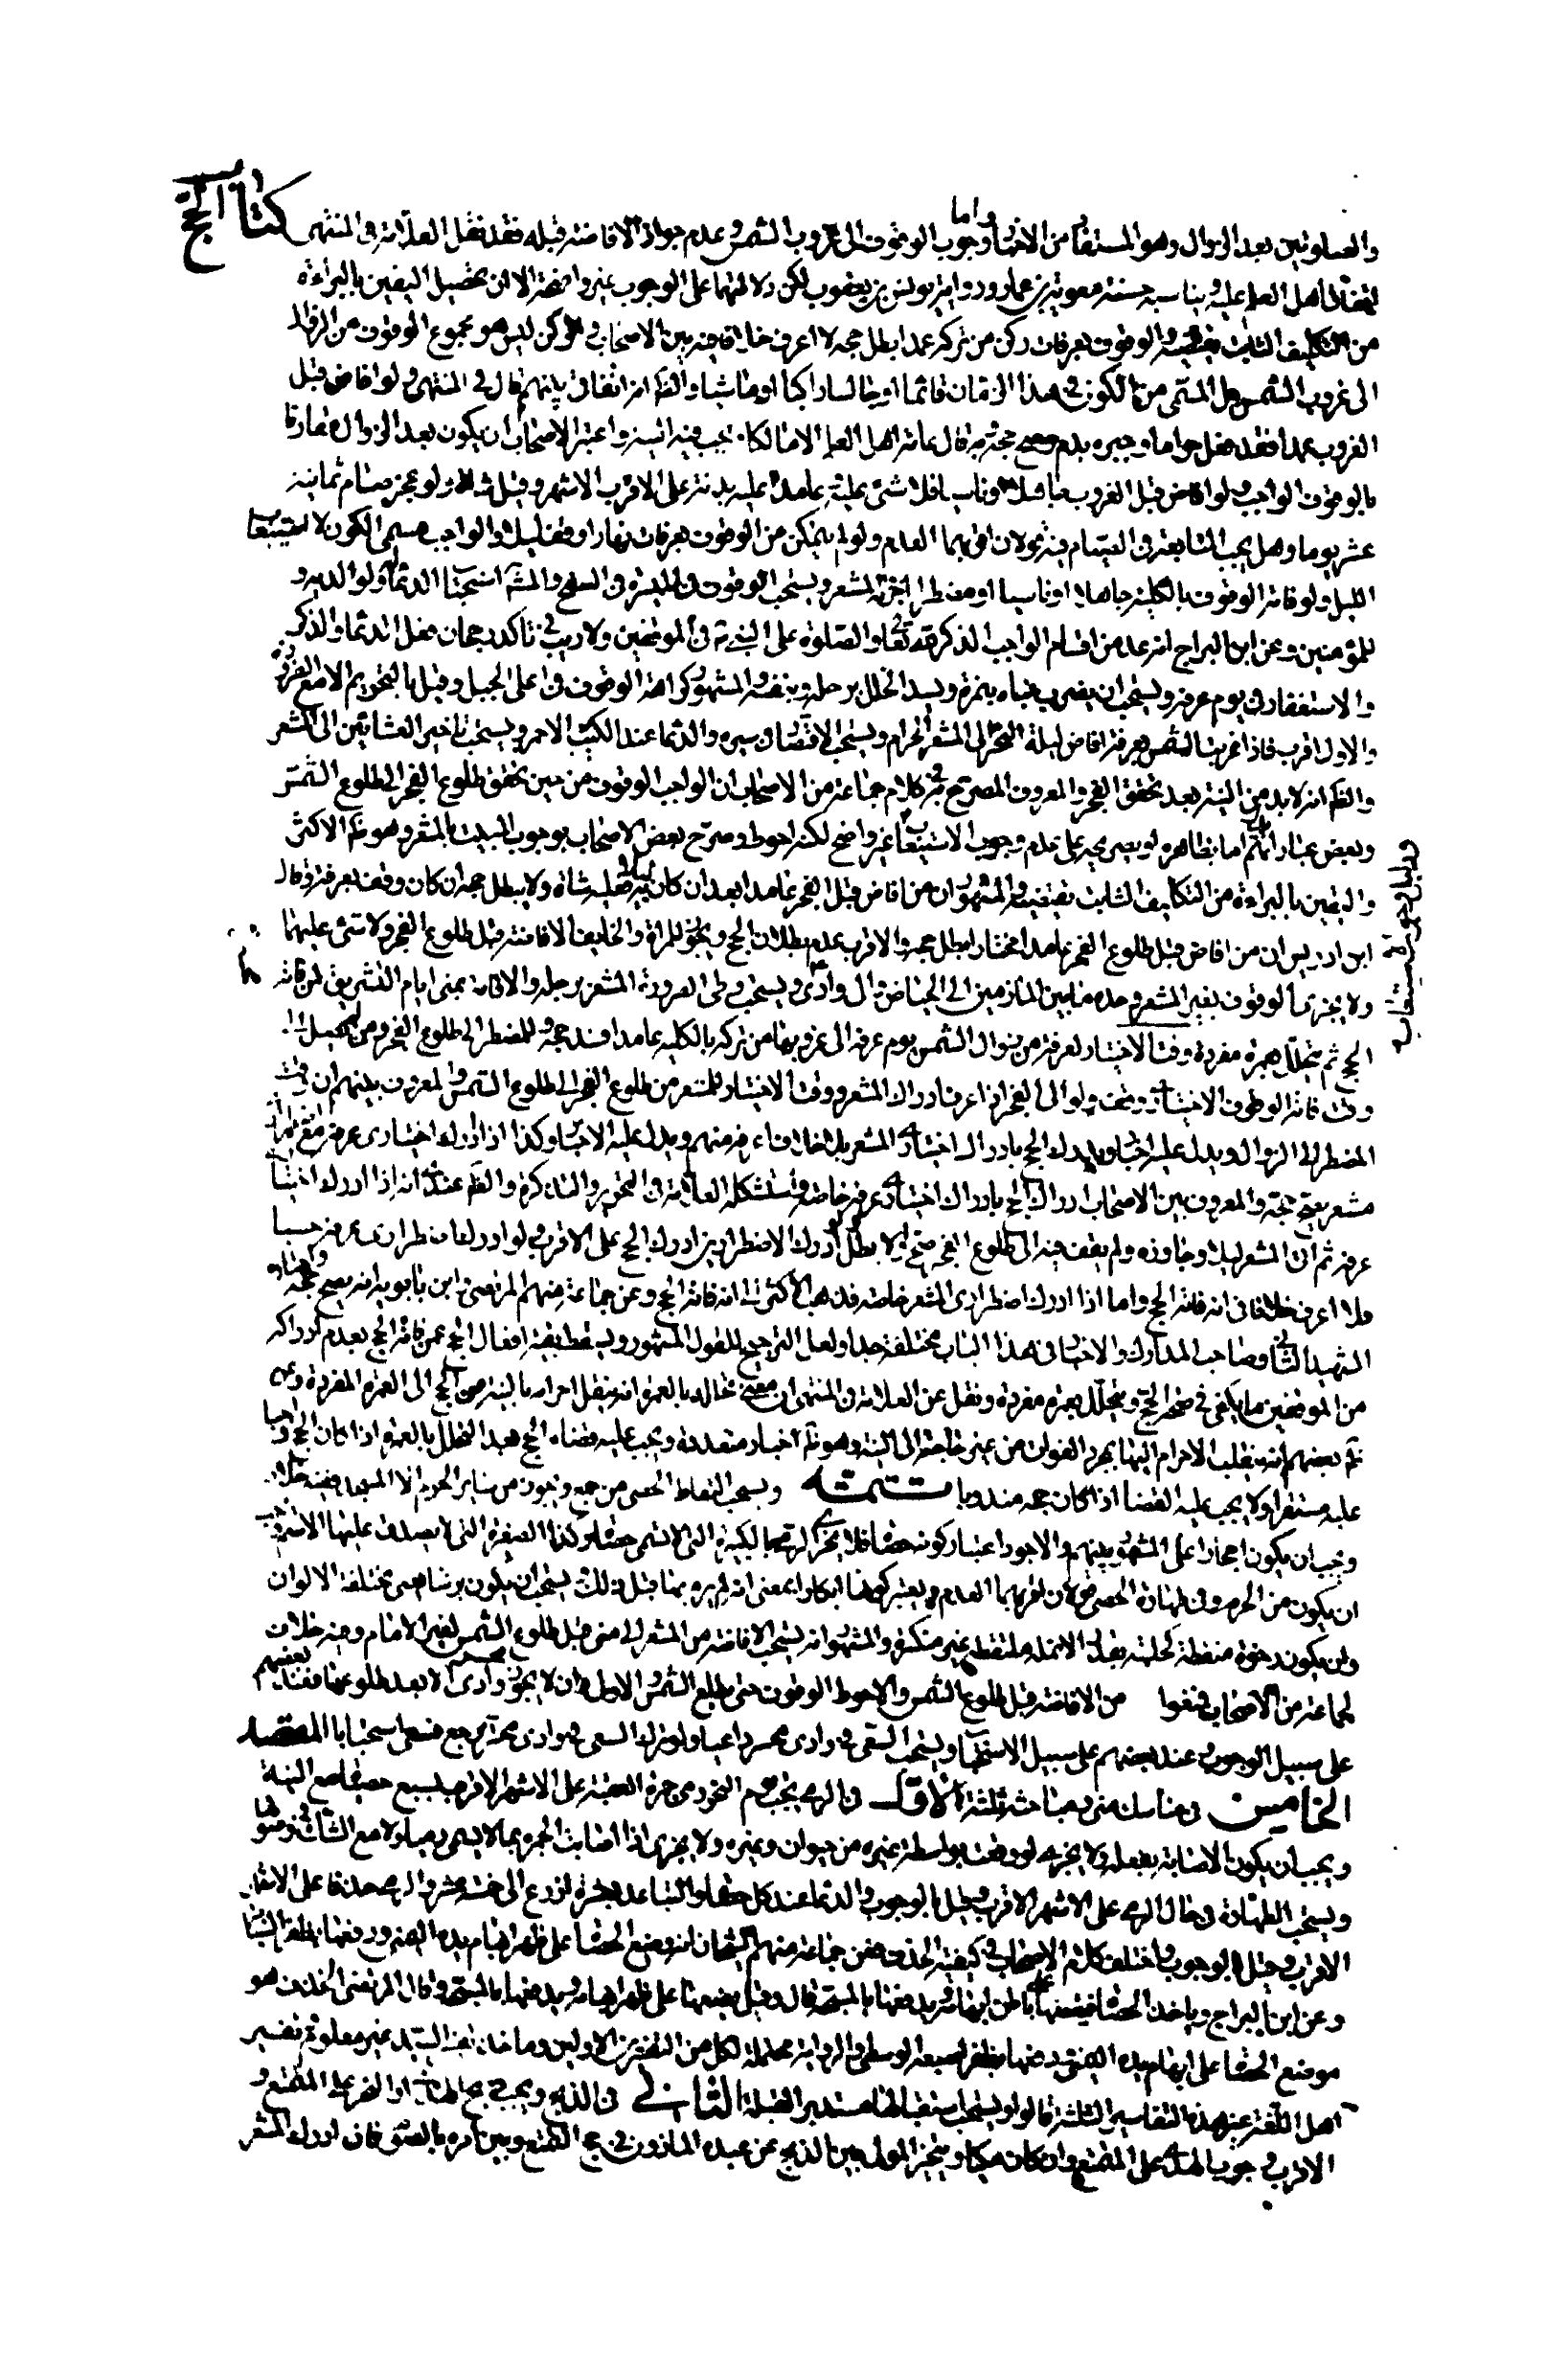 كتاب الحج
والصلوتين بعد الزوال وهو المستفاد من الاخبار واما وجوب الوقوف الى غروب الشمس وعدم جواز الافاضة قبله فقد نقل العلامة فى المنتهى
اتفاق اهل العلم عليه ويناسبه حسنة معوية بن عمار ورواية يونس بن يعقوب لكن دلالتهما على الوجوب غير واضحة الا ان تحصيل اليقين بالبراءة
من التكليف الثابت يقتضيه والوقوف بعرفات ركن من تركه عمدا بطل حجه لا اعرف خلافا فيه بين الاصحاب والركن ليس هو مجموع الوقوف من الزوال
الى غروب الشمس بل المسمى من الكون فى هذا الزمان قائما او جالسا راكبا او ماشيا والظ انه اتفاقى بينهم قال فى المنتهى ولو افاض قبل
الغروب عمدا فقد فعل حراما وجبره بدم وصح حجه وبه قال عامة اهل العلم الا مالكا يجب فيه النية واعتبر الاصحاب ان يكون بعد الزوال مقارنا
بالوقوف الواجب ولو افاض قبل الغروب جاهلا وناسيا فلا شئ عليه وعامدا عليه بدنة على الاقرب الاشهر وقيل شاة ولو عجز صام ثمانية
عشر يوما وهل يجب المتابعة فى الصيام فيه قولان اقربهما العدم ولو لم يتمكن من الوقوف بعرفات نهارا وقف ليلا والواجب مسمى الكون لا استيعاب
الليل ولو فاته الوقوف بالكلية جاهلا او ناسيا او مضطرا اجزأه المشعر ويستحب الوقوف فى الميسرة فى السفح والمش استحباب الدعاء له ولوالديه و
للمؤمنين وعن ابن البراج انه عد من اقسام الواجب الذكر لله تعالى والصلوة على النبى ص فى الموقفين ولا ريب فى تاكد رجحان فعل الدعاء والذكر
والاستغفار فى يوم عرفة ويستحب ان يضرب خباه بنمرة ويسد الخلل برحله وبنفسه والمشهور كراهة الوقوف فى اعلى الجبل وقيل بالتحريم الا مع الضرورة
والاول اقرب فاذا غربت الشمس بعرفة افاض ليلة النحر الى المشعر الحرام ويستحب الاقتصاد فى سيره والدعاء عند الكثيب الاحمر ويستحب تاخير العشائين الى المشعر
والظ انه لا بد من النية بعد تحقق الفجر والمعروف المصرح به فى كلام جماعة من الاصحاب ان الواجب الوقوف من حين تحقق طلوع الفجر الى طلوع الشمس
وبعض عباراتهم اما بظاهره او بصريحه يدل على عدم وجوب الاستيعاب غير واضح لكنه احوط وصرح بعض الاصحاب بوجوب المبيت بالمشعر وهو ظ الاكثر
ودليل وجوب الاستيعاب
واليقين بالبراءة من التكليف الثابت يقتضيه والمشهور ان من افاض قبل الفجر عامدا بعد ان كان به ليلا فعليه شاة ولا يبطل حجه ان كان وقف بعرفة وقال
ابن ادريس ان من افاض قبل طلوع الفجر عامدا مختارا بطل حجه والاقرب عدم بطلان الحج ويجوز للمراة والخايف الافاضة قبل طلوع الفجر ولا شئ عليهما
ولا يجزى الوقوف بغير المشعر وحده ما بين المازمين الى الحياض الى وادى محسر ويستحب وطى الصرورة المشعر برجله والاقامة بمنى ايام التشريق لمن فاته
الحج ثم يتحلل بعمرة مفردة وقت الاختيار لعرفة من زوال الشمس يوم عرفة الى غروبها من تركه بالكلية عامدا فسد حجه وللمضطر الى طلوع الفجر
وقت المضطر الى الزوال ويدل عليه اخبار ويدرك الحج بادراك اختيارى المشعر بلا خلاف اعرفه منهم ويدل عليه الاخبار وكذا اذا ادرك اختيارى عرفة مع اضطرارى
مشعر يصح حجه والمعروف بين الاصحاب ادراك الحج بادراك اختيارى عرفة خاصة واستشكله العلامة فى التحرير والتذكرة والظ عندى انه اذا ادرك اختيارى
عرفة ثم اتى المشعر ليلا وجاوزه ولم يقف فيه الى طلوع الفجر صح والا بطل ولو ادرك الاضطراريين ادرك الحج على الاقرب ولو ادرك اضطرارى عرفة حسب
فلا اعرف خلافا فى انه فاته الحج واما اذا ادرك اضطرارى المشعر خاصة فذهب الاكثر الى انه فاته الحج وعن جماعة منهم المرتضى وابن بابويه انه يصح حجه واختاره
الشهيد الثانى وصاحب المدارك والاخبار فى هذا الباب مختلفة جدا ولعل الترجيح للقول المشهور ويسقط بقية افعال الحج عمن فاته الحج بعدم ادراكه
من الموقفين ما يكفى فى صحة الحج ويتحلل بعمرة مفردة ونقل عن العلامة فى المنتهى ان معنى تحلله بالعمرة انه ينقل احرامه بالنية من الحج الى العمرة المفردة وعن
ظ بعضهم انه ينقلب الاحرام اليها بمجرد الفوات من غير حاجة الى النية وهو ظ اخبار متعددة ويجب عليه قضاء الحج بعد التحلل بالعمرة اذا كان الحج واجبا
عليه مستقرا ولا يجب عليه القضا اذا كان حجه مندوبا تتمة ويستحب التقاط الحصى من جمع ويجوز من ساير الحرم الا المسجد ففيه خلاف
ويجب ان يكون احجارا على المشهور بينهم والاجود اعتبار كونه حصا فلا يجزى الرمى بالكبيرة التى لا تسمى حصاة وكذا الصغيرة التى لا يصدق عليها الاسم ويجب
ان يكون من الحرم وفى طهارة الحصى قولان اقربهما العدم ويعتبر كونها ابكارا بمعنى انه لم يرم بها قبل ذلك ويستحب ان يكون برشا هى مختلفة الالوان
وان يكون رخوة منقطة كحلية بقدر الانملة ملتقطة غير منكسرة والمشهور انه يستحب الافاضة من المشعر الى منى قبل طلوع الشمس لغير الامام وفيه خلاف
لجماعة من الاصحاب فمنعوا من الافاضة قبل طلوع الشمس والاحوط الوقوف حتى يطلع الشمس الاولى وان لا يجوز وادى محسر الا بعد طلوعها
على سبيل الوجوب وعند بعضهم على سبيل الاستحباب ويستحب السعى فى وادى محسر داعيا ولو ترك السعى فى وادى محسر رجع فسعى استحبابا المقصد
الخامس فى مناسك منى وفيه مباحث ثلثة الاول فى الرمى يجب يوم النحر رمى جمرة العقبة على الاشهر الاقرب بسبع حصيات مع النية
ويجب ان يكون الاصابة بفعله ولا يجزى لو وقعت بواسطة غيره من حيوان وغيره ولا يجزى اذا اصابت الجمرة بما لا يسمى رميا ولا مع الشك فى وصولها
ويستحب الطهارة فى حال الرمى على الاشهر الاقرب وقيل بالوجوب والدعاء عند كل حصاة والتباعد بعشرة اذرع الى خمسة عشر والرمى خذفا على الاشهر
الاقرب وقيل بالوجوب واختلف كلام الاصحاب فى كيفية الخذف فعن جماعة منهم الشيخان انه وضع الحصاة على ظهر ابهام يده اليمنى ودفعها بظفر السبابة
وعن ابن البراج وياخذ الحصاة فيضعها على باطن ابهامه ويدفعها بالمسبحة قال وقيل يضعها على ظهر ابهامه ويدفعها بالمسبحة وقال المرتضى الخذف هو
موضع الحصاة على ابهام يده اليمنى ودفعها بظفر اصبعه الوسطى والرواية محتملة لكل من التفسيرين الاولين وماخذ السيد غير معلوم وتفسير
اهل اللغة غير هذه التفاسير الثلثة قالوا ويستحب استقبالها مستدبر القبلة الثانى فى الذبح ويجب ذبح الهدى او النحر على المتمتع و
الاقرب وجوب الهدى على المتمتع وان كان مكيا ويتخير المولى بين الذبح عن عبده الماذون فى حج التمتع وبين امره بالصوم فان ادرك المشعر